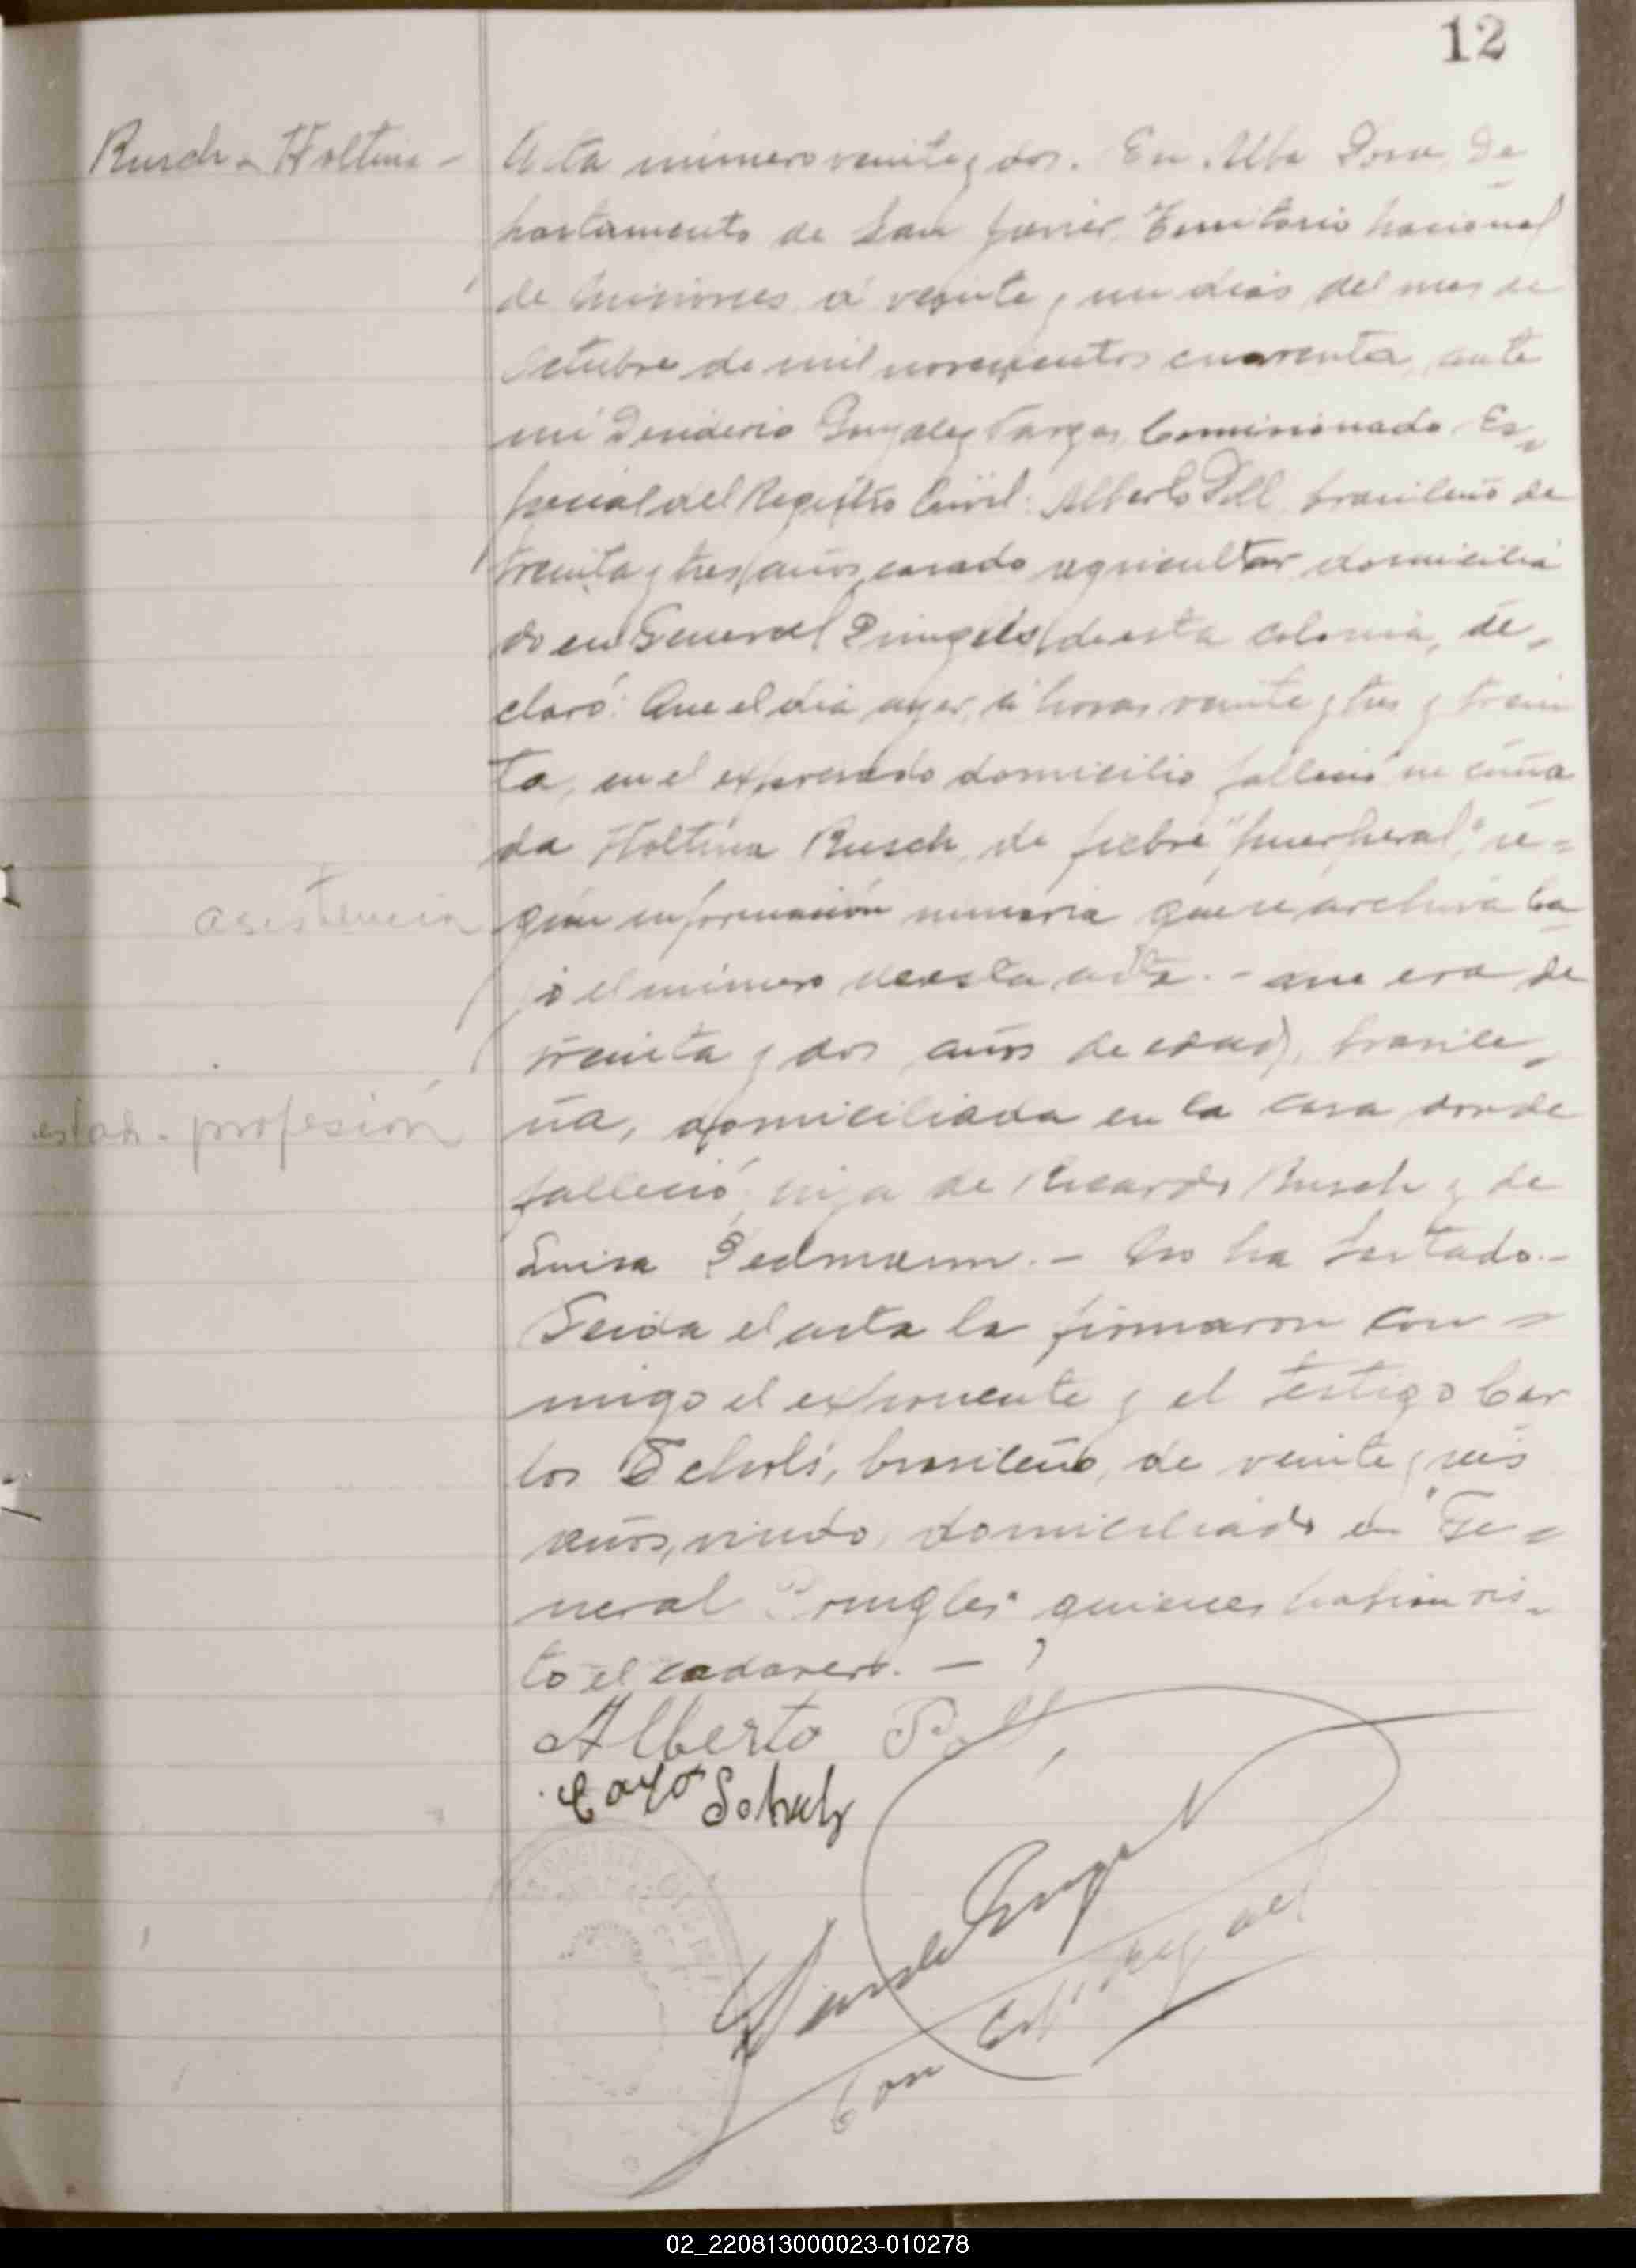 12
Rusch - Holtina -
Acta número veinte y dos. En Alba Posse, De
partamento de San Javier, Territorio Nacional
de Misiones, á veinte y un dias del mes de
Octubre de mil novecientos cuarenta, ante
mi Deciderio Gonzalez Vargas, Comisionado Es-
pecial del Registro Civil: Alberto Poll brasileño de
treinta y tres años, casado agricultor domicilia
do en General Pringles de esta colonia, de-
claró: Que el dia ayer, á horas veinte y tres y trein
ta, en el expresado domicilio falleció su cuña
da Holtina Rusch, de fiebre "puerperal", se-
gún información sumaria que se archiva ba
asistencia
jo el número de esta acta. - Que era de
treinta y dos años de edad, brasile-
ña, domiciliada en la casa donde
estado - profesión
falleció, hija de Ricardo Rusch y de
Luisa . - No ha testado. -
Leida el acta la firmaron con-
migo el exponente y el testigo Car
los , brasileño, de veinte y seis
años, viudo, domiciliado en "Ge-
neral Pringles" quienes habian vis-
to el cadaver. -
Alberto Poll
Schulz
02_220813000023-010278